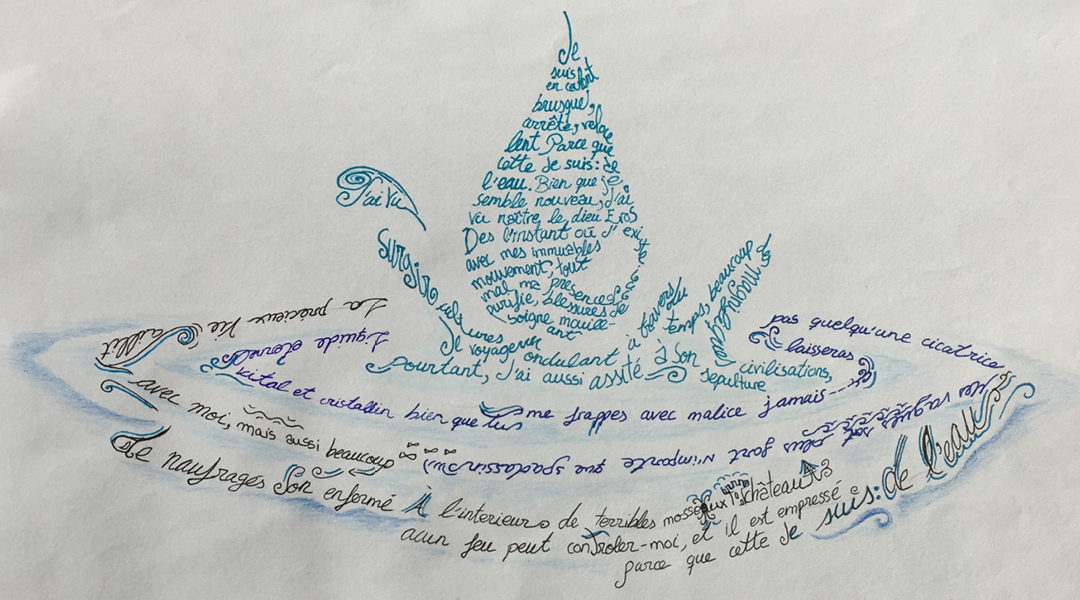 Je
suis
en
brusque,
arrête,
lent Parce que
cette Je suis: de
l'eau. Bien que je
semble nouveau, j'ai
vu naître le dieu Eros
Des l'instant où J'existe
avec mes immuables
mouvement, tout
mal ma présence
purifie, blessures de
soigne mouille-
ant
J'ai vu
Surgir
cultures
Je voyage en
ondulant
à travers
du
temps, beaucoup de
pourtant, J'ai aussi assité
à son
sepulture
civilisations,
La précieux
avec moi, mais aussi beaucoup
De naufrages Son enfermé À l'interieur de terribles
château
Liquide éternel
Vital et cristallin bien que tu me frappes avec malice jamais
laisseras
pas quelqu'une cicatrice
vagues sont plus fort n'importe que spadassin
feu peut controler-moi, et il est empressé
parce que cette Je suis: de l'eau